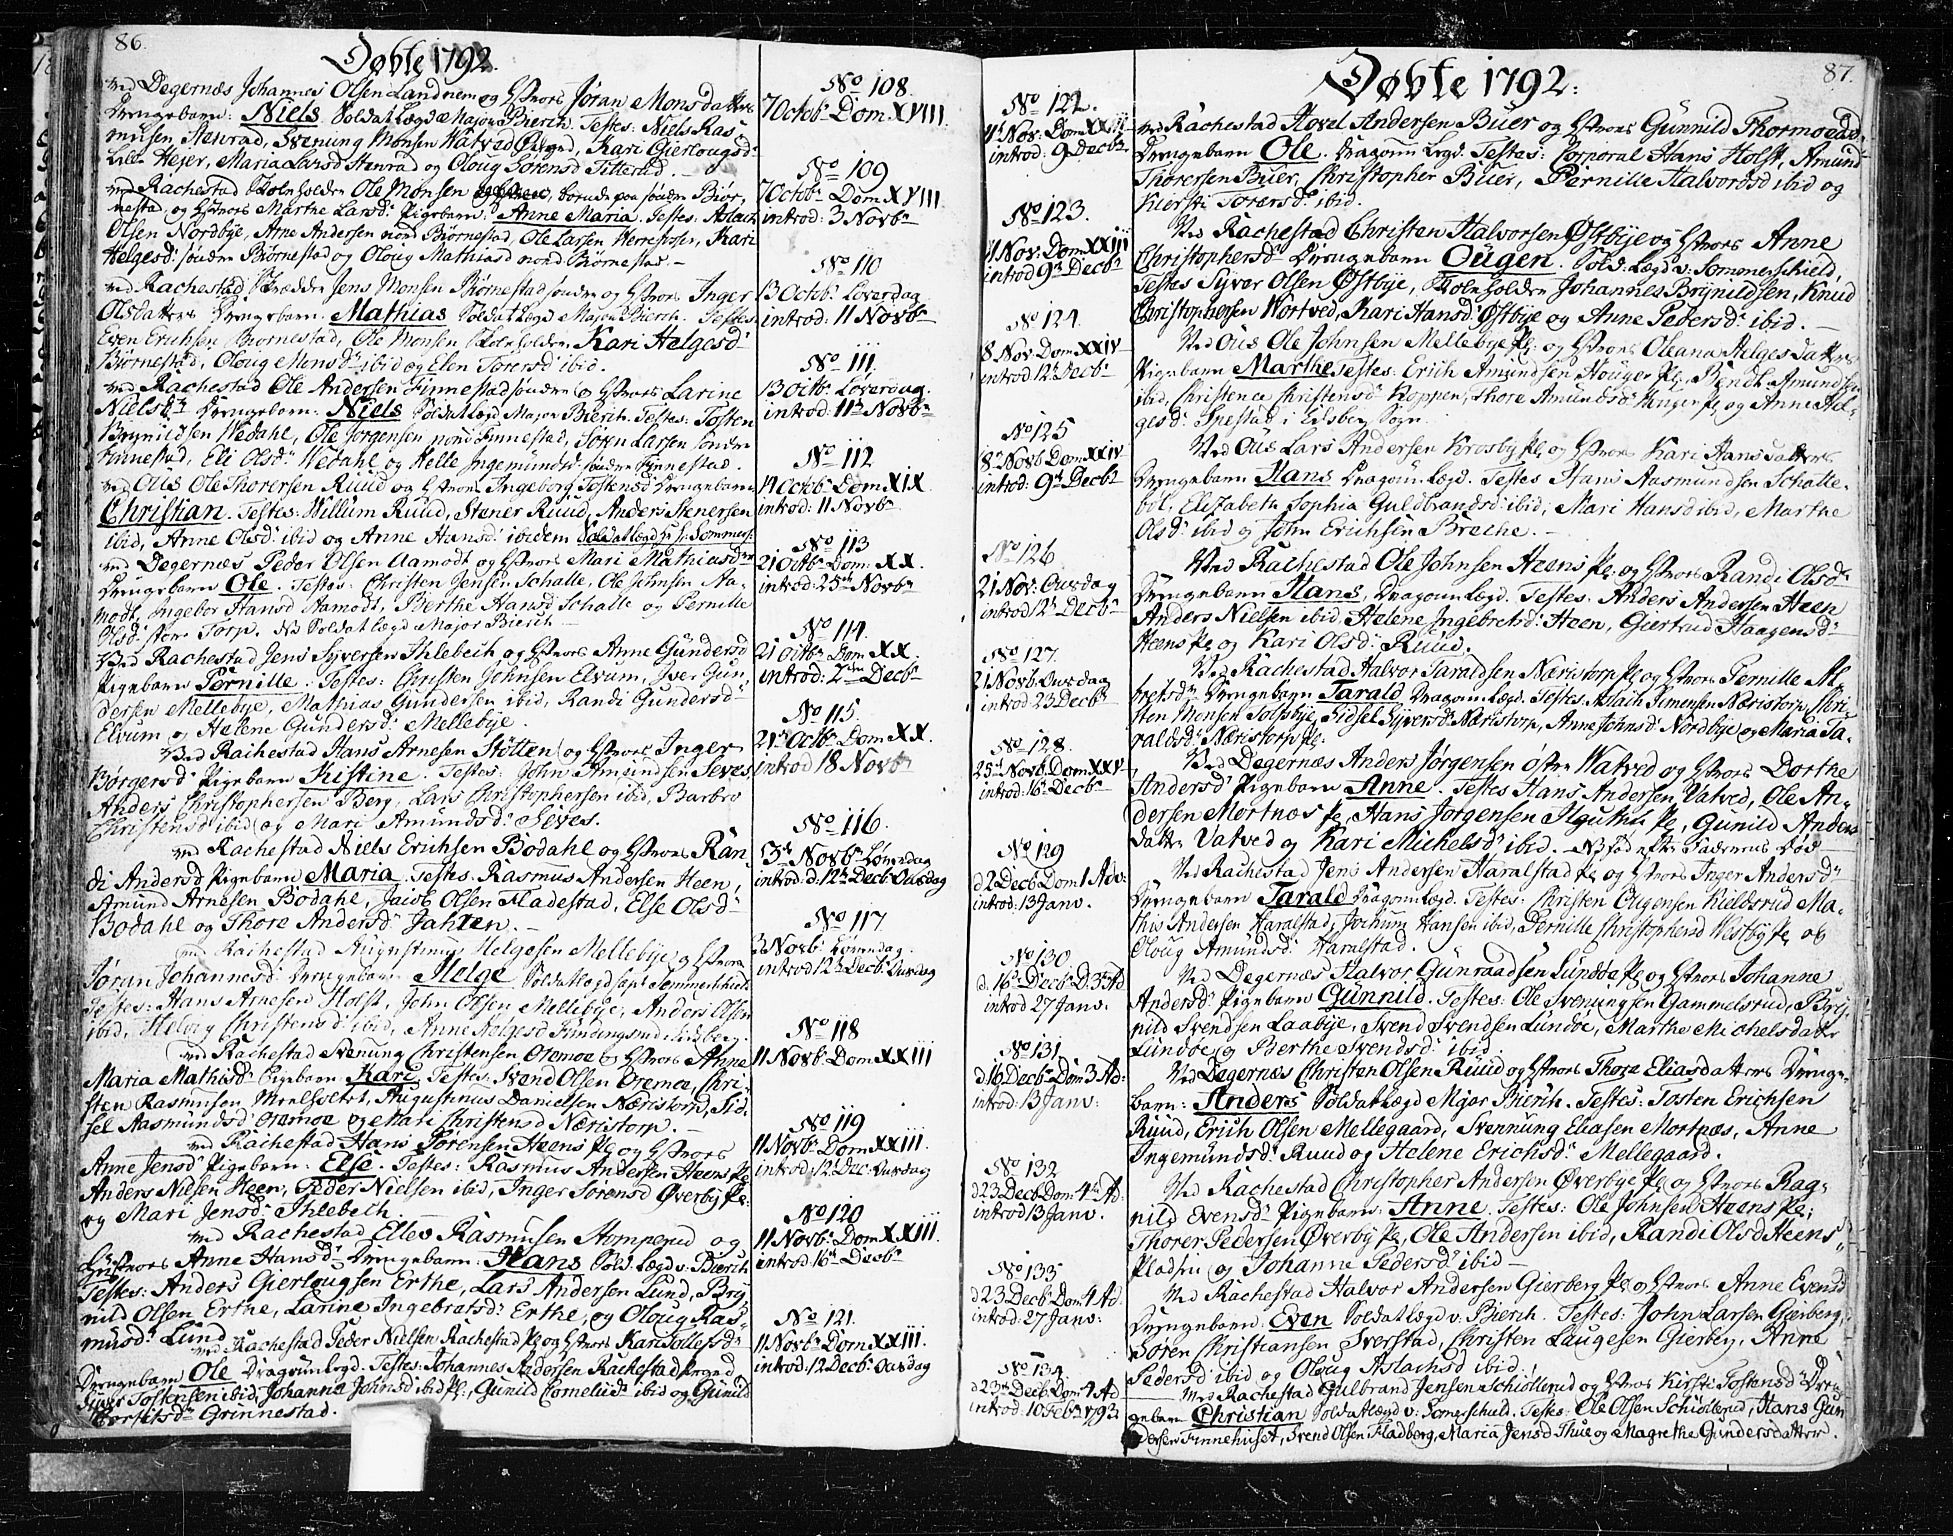 86.
Døbte 1792.
ved Degernæs Johannes Olsen Landnem og Hstroes Jøran Monsdatters
Drengebarn: Niels Soldat Lægd Major Bierch. Testes: Niels Ras-
musen Stenrad, Svenung Monsen Watved, Kari Gierlougsd:
Lille Hejer, Maria Larsd Stenrad og Oloug Sørensd Titterud.
ved Rachestad Skoleholder Ole Monsen boende paa søndre Biør-
nestad og Hstroes Marthe Larsd: Pigebarn: Anne Maria. Testes: Aslach
Olsen Nordbye, Arne Andersen nord Biørnestad, Ole Larsen Herrefosser, Kari
Helgesd: søndre Biørnestad og Oloug Mathiasd nord Biørnestad.
ved Rachestad Skrædder Jens Monsen Biørnestad søndre og Hstroes Inger
Olsdatters Drengebarn: Mathias Soldat Lægd Major Bierch. Testes
Even Erichsen Biørnestad, Ole Monsen Skoleholder, Kari Helgesd:
Biørnestad, Oloug Monsd: ibid og Elen Torersd ibid.
ved Rachestad Ole Andersen Finnestad søndre og Hstroes Larine
Nielsd: Drengebarn: Niels Soldat Lægd Major Bierch. Testes: Tosten
Brynildsen Wedahl, Ole Jørgensen nord Finnestad, Sørn Larsen søndre
Finnestad, Eli Olsd: Wedahl og Helle Ingemundsd: søndre Finnestad.
ved Øus Ole Thorersen Ruud og Hstroes Ingeborg Tostensd: Drengebarn
Christian. Testes: Willum Ruud, Stener Ruud, Anders Stenersen
ibid, Anne Olsd: ibid og Anne Hansd: ibidem Soldat Lægd Sommersch.
ved Degernæs Peder Olsen Aamodt og Hstroes Mari Mathiasd:
Drengebarn Ole. Testes: Christen Jensen Schalle, Ole Johnsen Aa-
modt, Ingebor Hansd Aamodt, Berthe Hansd: Schalle og Pernille
Olsd: store Torp. NB Soldat Lægd Major Bierch
Ved Rachestad Jens Syversen Ihlebech og Hstroes Anne Gundersd
Pigebarn Pernille. Testes: Christen Johnsen Elvum, Iver Gun-
dersen Mellebye, Mathias Gundersen ibid, Randi Gundersd:
Elvum og Helene Gundersd: Mellebye.
Ved Rachestad Hans Arnesen Støtten og Hstroes Inger
Børgersd: Pigebarn Kistine. Testes: John Amundsen Seves
Anders Christophersen Berg, Lars Christophersen ibid, Barbro
Christensd ibid og Mari Amundsd: Seves.
ved Rachestad Niels Erichsen Bodahl og Hstroes Ran-
di Andersd Pigebarn Maria. Testes: Rasmus Andersen Heen,
Amund Arnesen Bodahl, Jacob Olsen Fladestad, Else Olsd:
Bodahl og Thore Andersd: Jahren.
ved Rachestad Augustinus Helgesen Mellebye og Hstroes
Jøran Johannesd: Drengebarn Helge Soldat Lægd Capt Sommerschield
Testes: Hans Arnesen Holst, John Olsen Mellebye, Anders Olsen
ibid, Helvig Christensd: ibid, Anne Helgesd
ved Rachestad Svenung Christensen Oremoe og Hstroes Anne
Maria Mathisd: Pigebarn Kari. Testes: Svend Olsen Oremoe, Chri-
sten Rasmusen, Augustinus Danielsen Næristorp, Sid-
sel Rasmundsd: Oremoe og Mari Christensd Næristorp.
ved Rachestad Hans Sørensen Heens Pe og Hstroes
Anne Jensd Pigebarn: Else. Testes: Rasmus Andersen Heens Pe
Anders Nilsen Heen, Peder Nielsen ibid, Inger Sørensd Øverby Pe
og Mari Jensd: Ihlebech.
ved Rachestad Ellev Rasmusen Stomperud og
Hustroes Anne Hansd: Drengebarn: Hans Sold: Lægd v: Bierch
Testes: Anders Gierlougsen Erthe, Lars Andersen Lund, Bry-
nild Olsen Erthe, Larine Ingebratsd: Erthe, og Oloug Ras-
musd: Lund
ved Rachestad Peder Nielsen Rachestad Pe og Hstroes Kari Tollefsd:
Drengebarn Ole Dragoun Lægd. Testes: Johannes Andersen Rachestad
Iver Tostensen ibid, Johanna Johnsd ibid Pe, Gunild Corneliid: ibid og Gunild
Grinnestad.
No 108
7 Octob: Dom XVIII.
No 109
7 Octob: Dom XVIII
introd: 3 Novb:
No 110
13 Octob: Løverdag
introd: 11 Novb:
No 111
13 Octb: Løverdag.
introd: 11 Novb:
No 112
14 Octb: Dom XIX.
introd: 11 Novb:
No 113
21 Octb: Dom: XX.
introd: 25 Novb:
No 114.
21 Octb: Dom: XX.
introd: 2den Decb:
No 115.
21 Octb: Dom XX.
introd 18 Novb:
No 116.
Novb: Løverdag
introd. d. 12 Decb: Onsdag
No 117.
Novb: Løverdag.
introd 12 Decb: Onsdag
No 118
11 Novb: Dom XXIII
No 119
11 Novb: Dom XXIII.
introd: 12 Dec: Onsdag
No 120
11 Novb: Dom XXIII.
introd: 16 Decb:
No 121.
11 Novb: Dom XXIII.
introd: 12 Decb: Onsdag
87.
Døbte 1792:
No 122.
11 Nov: Dom XXIII
introd: 9 Decb:
No 123.
11 Nov: Dom XXIII
introd 9 Decb:
No 124.
18 Nov Dom XXIV
introd: 12 Decb:
No 125
18 Novb Dom XXIV
introd: 9 Decb:
No 126
21 Nov: Onsdag
introd 12 Decb:
No 127.
21 Novb: Onsdag
introd 23 Decb:
No 128.
25 Novb. Dom XXV
introd: 16 Decb:
No 129
d 2 Decb Dom 1 Adv:
introd: 13 Janv.
No 130
d. 16 Decb: D. 3 Ad
introd 27 Janv:
No 131
d. 16 Decb: Dom 3 Ad:
introd: 13 Janv:
No 132
d 23 Decb: Dom: 4 Ad.
introd 13 Janv.
No 133
d 23 Decb: Dom: 4 Ad.
introd: 27 Janv:
No 134
d. 23 Decb: Dom: 4 Ad
introd: 10 Feb: 1793.
ved Rachestad Hovel Andersen Buer og Hstroes Gunnild Thormoesd
Drengebarn Ole. Dragoun Lægd. Testes: Corporal Hans Holst, Amund
Thorersen Buer, Christopher Buer, Pernille Halvorsd ibid og
Kiersti Torersd: ibid.
Ved Rachestad Christen Halvorsen Østbye og Hstroes Anne
Christophersd: Drengebarn Ougen. Sold: Lægd v: Sommerschield,
Testes Syver Olsen Østbye, Skoleholder Johannes Brynildsen, Knud
Christophersen Wortved, Kari Hansd: Østbye og Anne Pedersd: ibid.
Ved Øus Ole Johnsen Mellebye Pe: og Hstroes Oleana Helgesdatters
Pigebarn Marthe. Testes: Erich Amundsen Houger Pe, Bendt Amundsen
ibid, Christence Christensd Koppen, Thore Amundsd: Hougen Pe og Anne Hel-
gesd: Spestad i Edsberg Sogn.
Ved Øus Lars Andersen Krosby Pe og Hstroes Kari Hansdatters
Drengebarn Hans Dragoun Lægd. Testes Hans Aasmundsen Schalle-
bøl, Elisabeth Sophia Guldbrandsd: ibid, Mari Hansd ibid, Marthe
Olsd: ibid og John Erichsen Breche.
Ved Rachestad Ole Johnsen Heens Pe: og Hstroes Randi Olsd:
Drengebarn Hans, Dragoun Lægd. Testes: Anders Andersen Heen
Anders Nielsen ibid, Helene Ingebretsd: Heen, Giertrud Haagensd:
Heens Pe og Kari Olsd: Ruud.
Ved Rachestad Halvor Taraldsen Næristorp Pe og Hstroes Pernille Al-
bretsd: Drengebarn Tarald Dragoun Lægd. Testes: Aslach Simensen Næristorp, Chri-
sten Monsen Solsbye, Sidsel Syversd: Næristorp, Anne Johnsd: Nordbye og Maria Ta-
raldsd: Næristorp Pe.
Ved Degernæs Anders Jørgensen østre Watved og Hstroes Dorthe
Andersd: Pigebarn Anne. Testes Hans Andersen Vatved, Ole An-
dersen Mortnæs Pe, Hans Jørgensen Pe, Gunild Anders-
datter Vatved og Kari Michelsd: ibid. NB fød efter Faderens Død
Ved Rachestad Jens Andersen Haralstad Pe og Hstroes Inger Andersd:
Drengebarn Tarald Dragoun Lægd. Testes: Christen Ougensen Kieldsrud Ma-
this Andersen Haralstad, Jochum Hansen ibid, Pernille Christophersd Westby Pe og
Oloug Amundsd: Haralstad.
Ved Degernæs Halvor Gunraadsen Lundøe Pe og Hstroes Johanne
Andersd: Pigebarn Gunnild. Testes: Ole Svenungsen Gammelsrud, Bry-
nild Svendsen Laabye, Svend Svendsen Lundøe, Marthe Michelsdatter
Lundøe og Berthe Svendsd: ibid.
Ved Degernæs Christen Olsen Ruud og Hstroes Thore Eliasdatters Drenge-
barn: Anders Soldat Lægd Major Bierch. Testes: Tosten Erichsen
Ruud, Erich Olsen Mellegaard, Svennung Eliasen Mortnæs, Anne
Ingemundsd: Ruud og Helene Erichsd: Mellegaard.
Ved Rachestad Christopher Andersen Øverbye Pe og Hstroes Rag-
nild Evensd: Pigebarn: Anne. Testes: Ole Johnsen Heens Pe;
Thorer Pedersen Øverby Pe, Ole Andersen ibid, Randi Olsd Heens
Pladsen og Johanne Pedersd: ibid
Ved Rachestad Halvor Andersen Gierberg Pe og Hstroes Anne Evensd
Drengebarn: Even Soldat Lægd v: Bierch. Testes: John Larsen Gierberg,
Søren Christiansen Sverstad, Christen Laugesen Gierberg, Anne
Pedersd ibid og Oloug Aslachsd ibid.
Ved Rachestad Gulbrand Jensen Schiøllerud og Hstroes Kirsti Tostensd: Dren-
gebarn Christian Soldat Lægd v: Somerschield. Testes: Ole Olsen Schiøllerud, Hans Gun
dersen Finnehuset, Svend Olsen Fladberg, Maria Jensd Thue og Magrethe Gundersdatter.